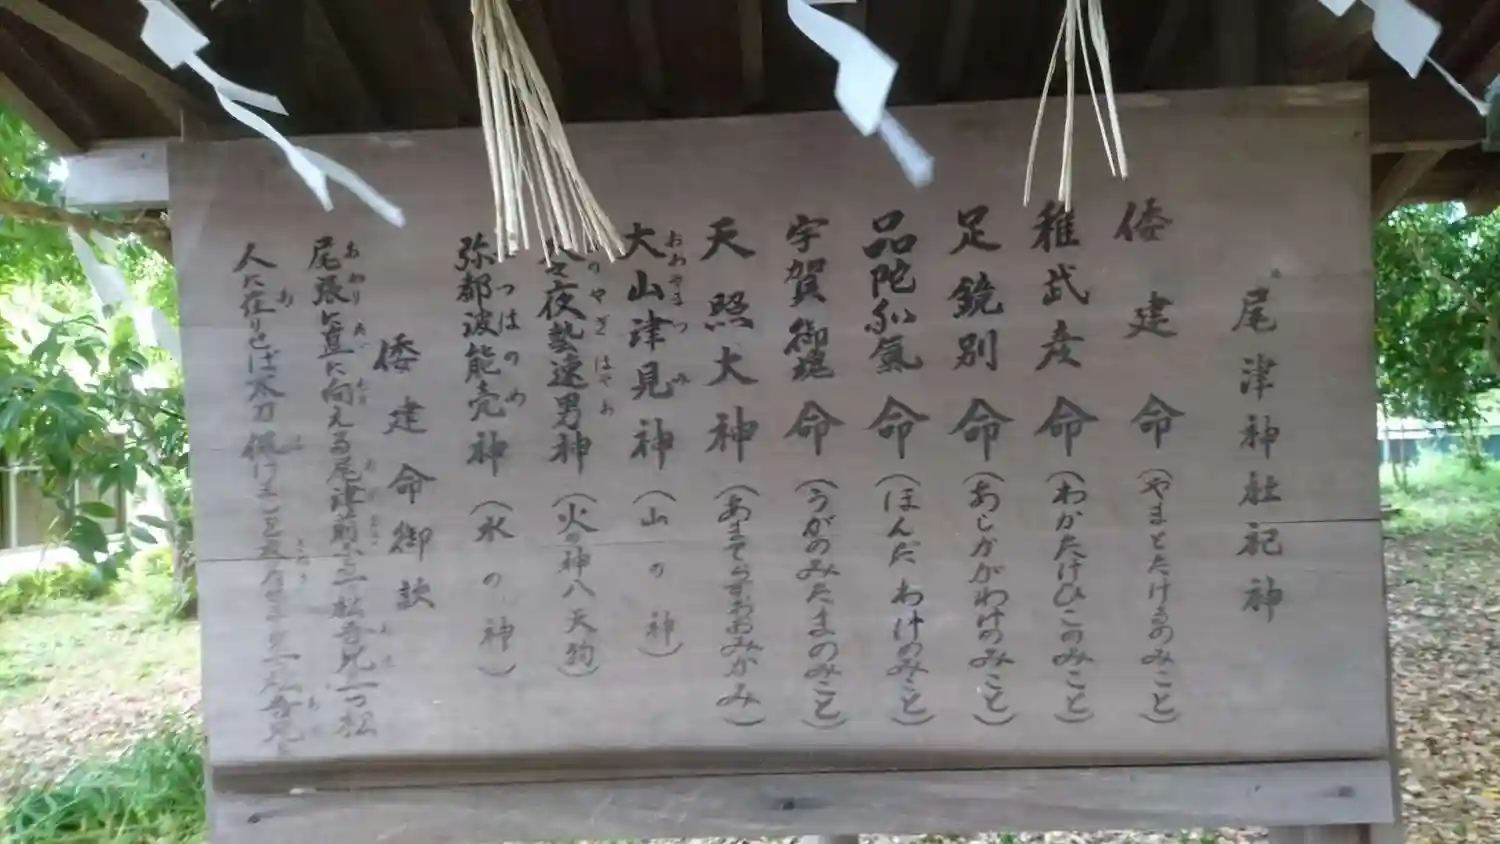 尾津神社祀神
倭建命（やまとたけるのみこと）
稚武彦命（わかたけひこのみこと）
足鏡別命（あしかがわけのみこと）
品陀和氣命（ほんだわけのみこと）
宇賀御魂命（うがのみたまのみこと）
天照大神（あまてらすおおみかみ）
大山津見神（山の神）
おおやまつみ
夜藝速男神（火の神八天狗）
のやぎはやお
弥都波能売神（水の神）
つはのめ
倭建命御歌
尾張に直に向える尾津前なる一松吾兄一つ松
人に在りせば太刀佩けまし を